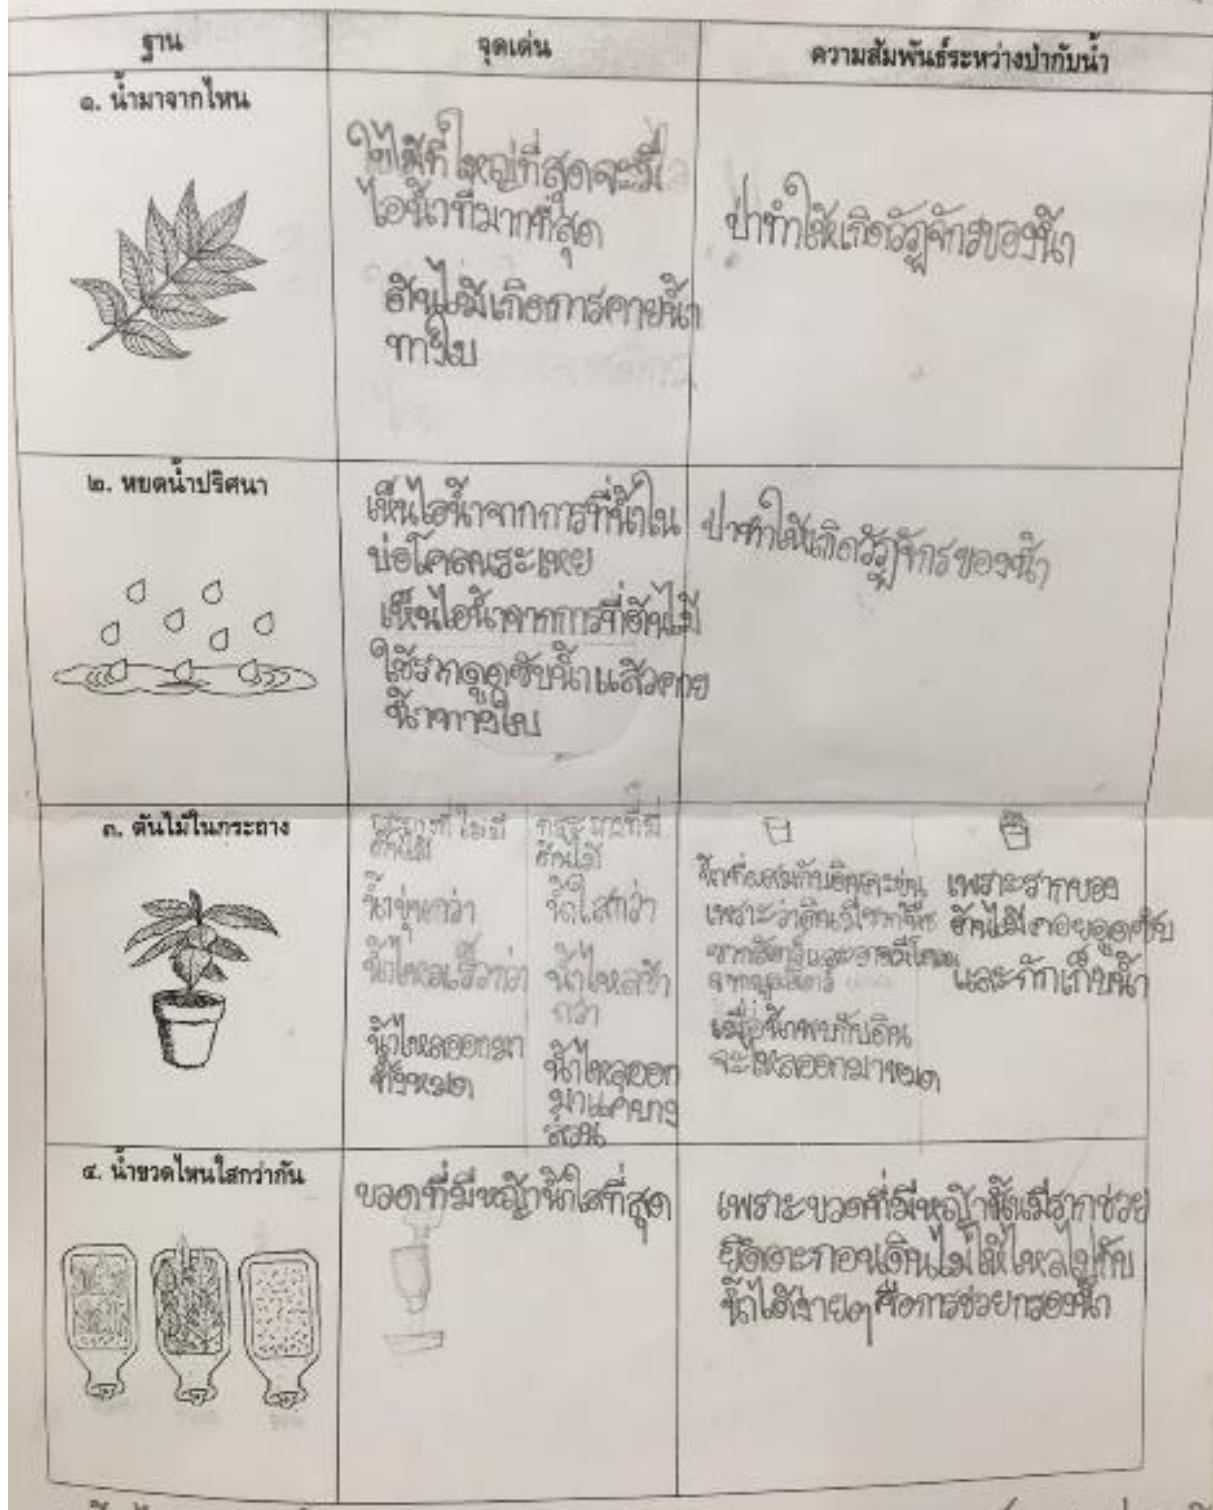 ฐาน
จุดเด่น
ความสัมพันธ์ระหว่างป่ากับน้ำ
๑. น้ำมาจากไหน
ใบไม้ที่ใหญ่ที่สุดจะมี
ไอน้ำที่มากที่สุด
ต้นไม้เกิดการคายน้ำ
ทางใบ
ป่าทำให้เกิดวัฏจักรของน้ำ
๒. หยดน้ำปริศนา
เห็นไอน้ำจากการที่น้ำใน
บ่อโคลนระเหย
เห็นไอน้ำจากการที่ต้นไม้
ใช้รากดูดซับน้ำแล้วคาย
น้ำทางใบ
ป่าทำให้เกิดวัฏจักรของน้ำ
๓. ต้นไม้ในกระถาง
กระถางที่ไม่มี
ต้นไม้
น้ำขุ่นกว่า
น้ำไหลเร็วกว่า
น้ำไหลออกมา
ทั้งหมด
กระถางที่มี
ต้นไม้
น้ำใสกว่า
น้ำไหลช้า
กว่า
น้ำไหลออก
มาแค่บาง
ส่วน
น้ำที่ผสมกับดินจะขุ่น
เพราะว่าดินมีซากพืช
ซากสัตว์และ
เมื่อน้ำพบกับดิน
จะไหลออกมาหมด
เพราะรากของ
ต้นไม้คอยดูดซับ
และกักเก็บน้ำ
๔. น้ำขวดไหนใสกว่ากัน
ขวดที่มีหญ้าน้ำใสที่สุด
เพราะขวดที่มีหญ้านั้นมีรากช่วย
ยึดตะกอนดินไม่ให้ไหลไปกับ
น้ำได้ง่ายๆ คือการช่วยกรองน้ำ